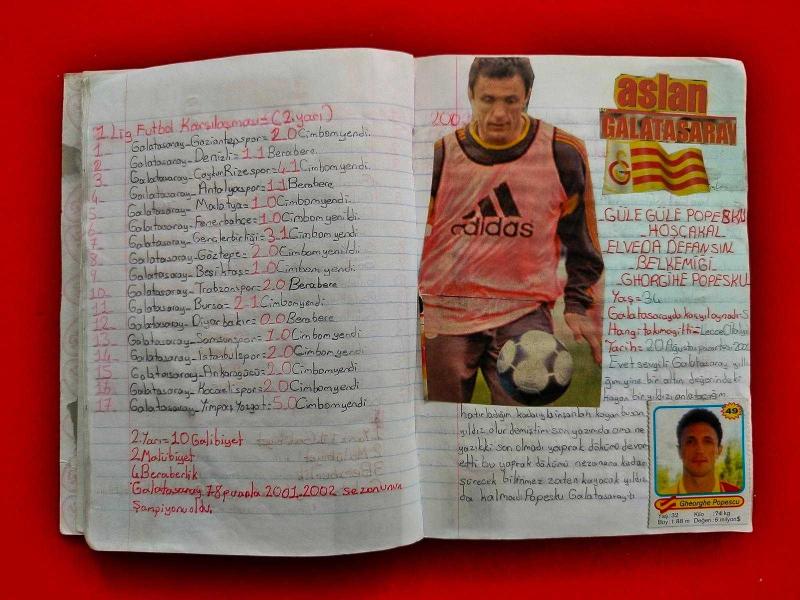 1. Lig Futbol Karşılaşması=(2.yarı)
1_ Galatasaray_Gaziantepspor=2.0 Cimbom yendi.
2_ Galatasaray_Denizli=1.1 Berabere.
3_ Galatasaray_ÇaykurRizespor=4.1 Cimbom yendi.
4_ Galatasaray_Antalyaspor=1.1 Berabere
5_ Galatasaray_Malatya=1.0 Cimbom yendi.
6_ Galatasaray_Fenerbahçe=1.0 Cimbom yenildi.
7_ Galatasaray_Gençlerbirliği=3.1 Cimbom yendi.
8_ Galatasaray_Göztepe=2.0 Cimbom yenildi.
9_ Galatasaray_Beşiktaş=1.0 Cimbom yendi.
10_ Galatasaray_Trabzonspor=2.0 Berabere
11_ Galatasaray_Bursa=2.1 Cimbom yendi.
12_ Galatasaray_Diyarbakır=0.0 Berabere
13_ Galatasaray_Samsunspor=1.0 Cimbom yendi.
14_ Galatasaray_İstanbulspor=2.0 Cimbom yendi.
15_ Galatasaray_Ankaragücü=2.0 Cimbom yendi.
16_ Galatasaray_Kocaelispor=2.0 Cimbom yendi.
17_ Galatasaray_Yimpaş Yozgat=5.0 Cimbom yendi.
2.Yarı=10 Galibiyet
2 Malubiyet
4 Beraberlik
Galatasaray 78 puanla 2001-2002 sezonunun
Şampiyonu oldu.
200
adidas
aslan
GALATASARAY
GÜLE GÜLE POPESKU
HOŞÇAKAL
ELVEDA DEFANSIN
BELKEMİĞİ
GHORGIHE POPESKU
Yaş=34
Galatasarayda kaç yıl oynadı=5
Hangi takıma gitti=Lecce
Tarih=20 Ağustos pazartesi
Evet sevgili Galatasaray
bir altın değerindeki
kayan bir yıldızı anlatacağım
hatırladığım kadarıyla insanlar kayan
yıldız olur demiştim son yazımda ama ne
yazıkki son olmadı yaprak dökümü devam
etti bu yaprak dökümü nezamana kadar
sürecek bilinmez zaten kayacak yıldız
da kalmadı Popesku Galatasaray'a
49
Gheorghe Popescu
Yaş: 32 Kilo :74 kg
Boy :1.88 m Değeri :6 milyon$